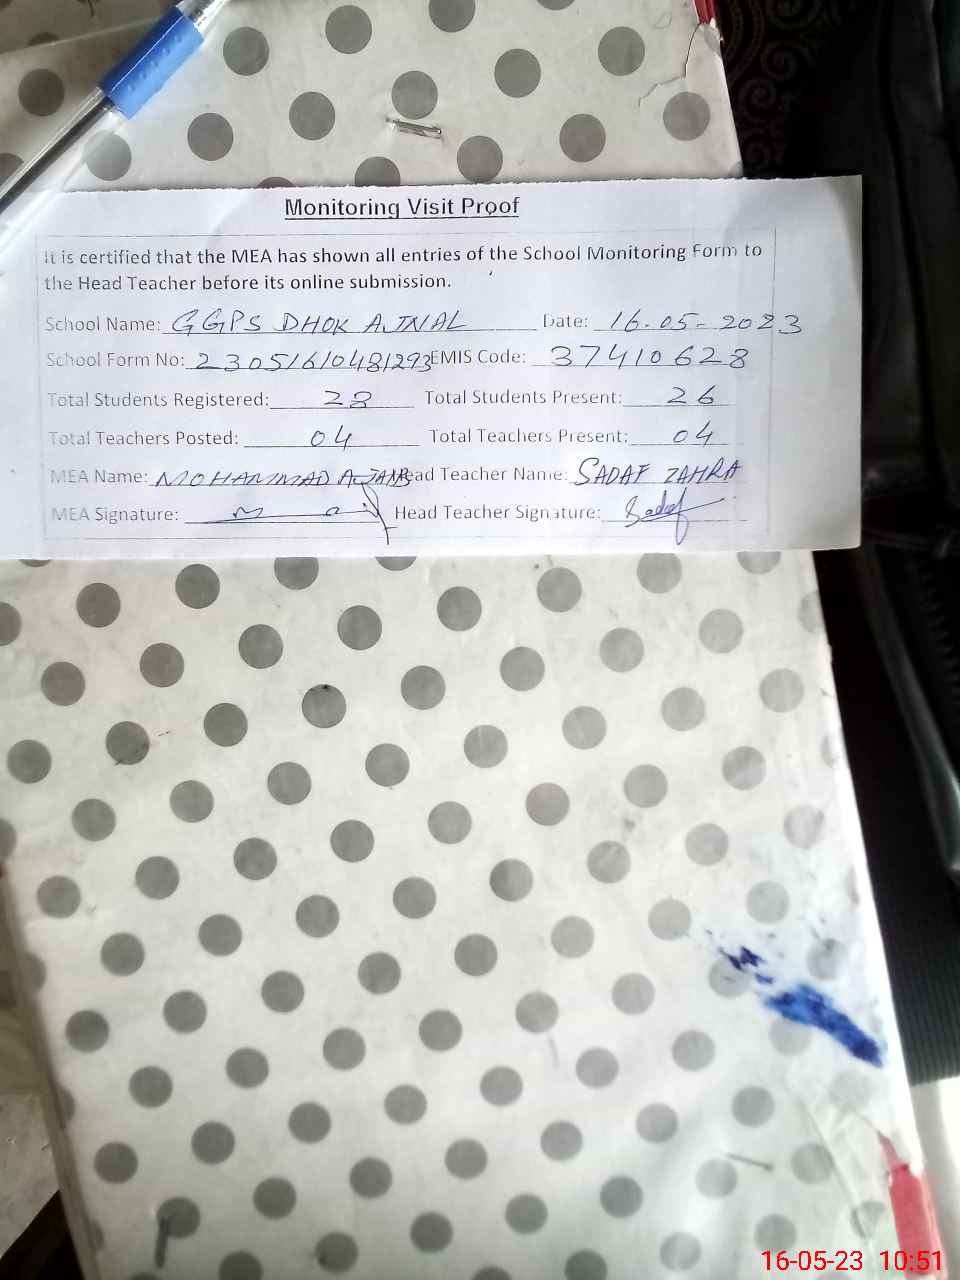 Monitoring Visit Proof
It is certified that the MEA has shown all entries of the School Monitoring Form to
the Head Teacher before its online submission.
School Name: GGPS DHOK AJNAL Date: 16-05-2023
School Form No: 23051610481293 EMIS Code: 37410628
Total Students Registered: 28 Total Students Present: 26
Total Teachers Posted: 04 Total Teachers Present: 04
MEA Name: MOHAMMAD AJAIB Head Teacher Name: SADAF ZAHRA
MEA Signature: Head Teacher Signature: Sadaf
16-05-23 10:51